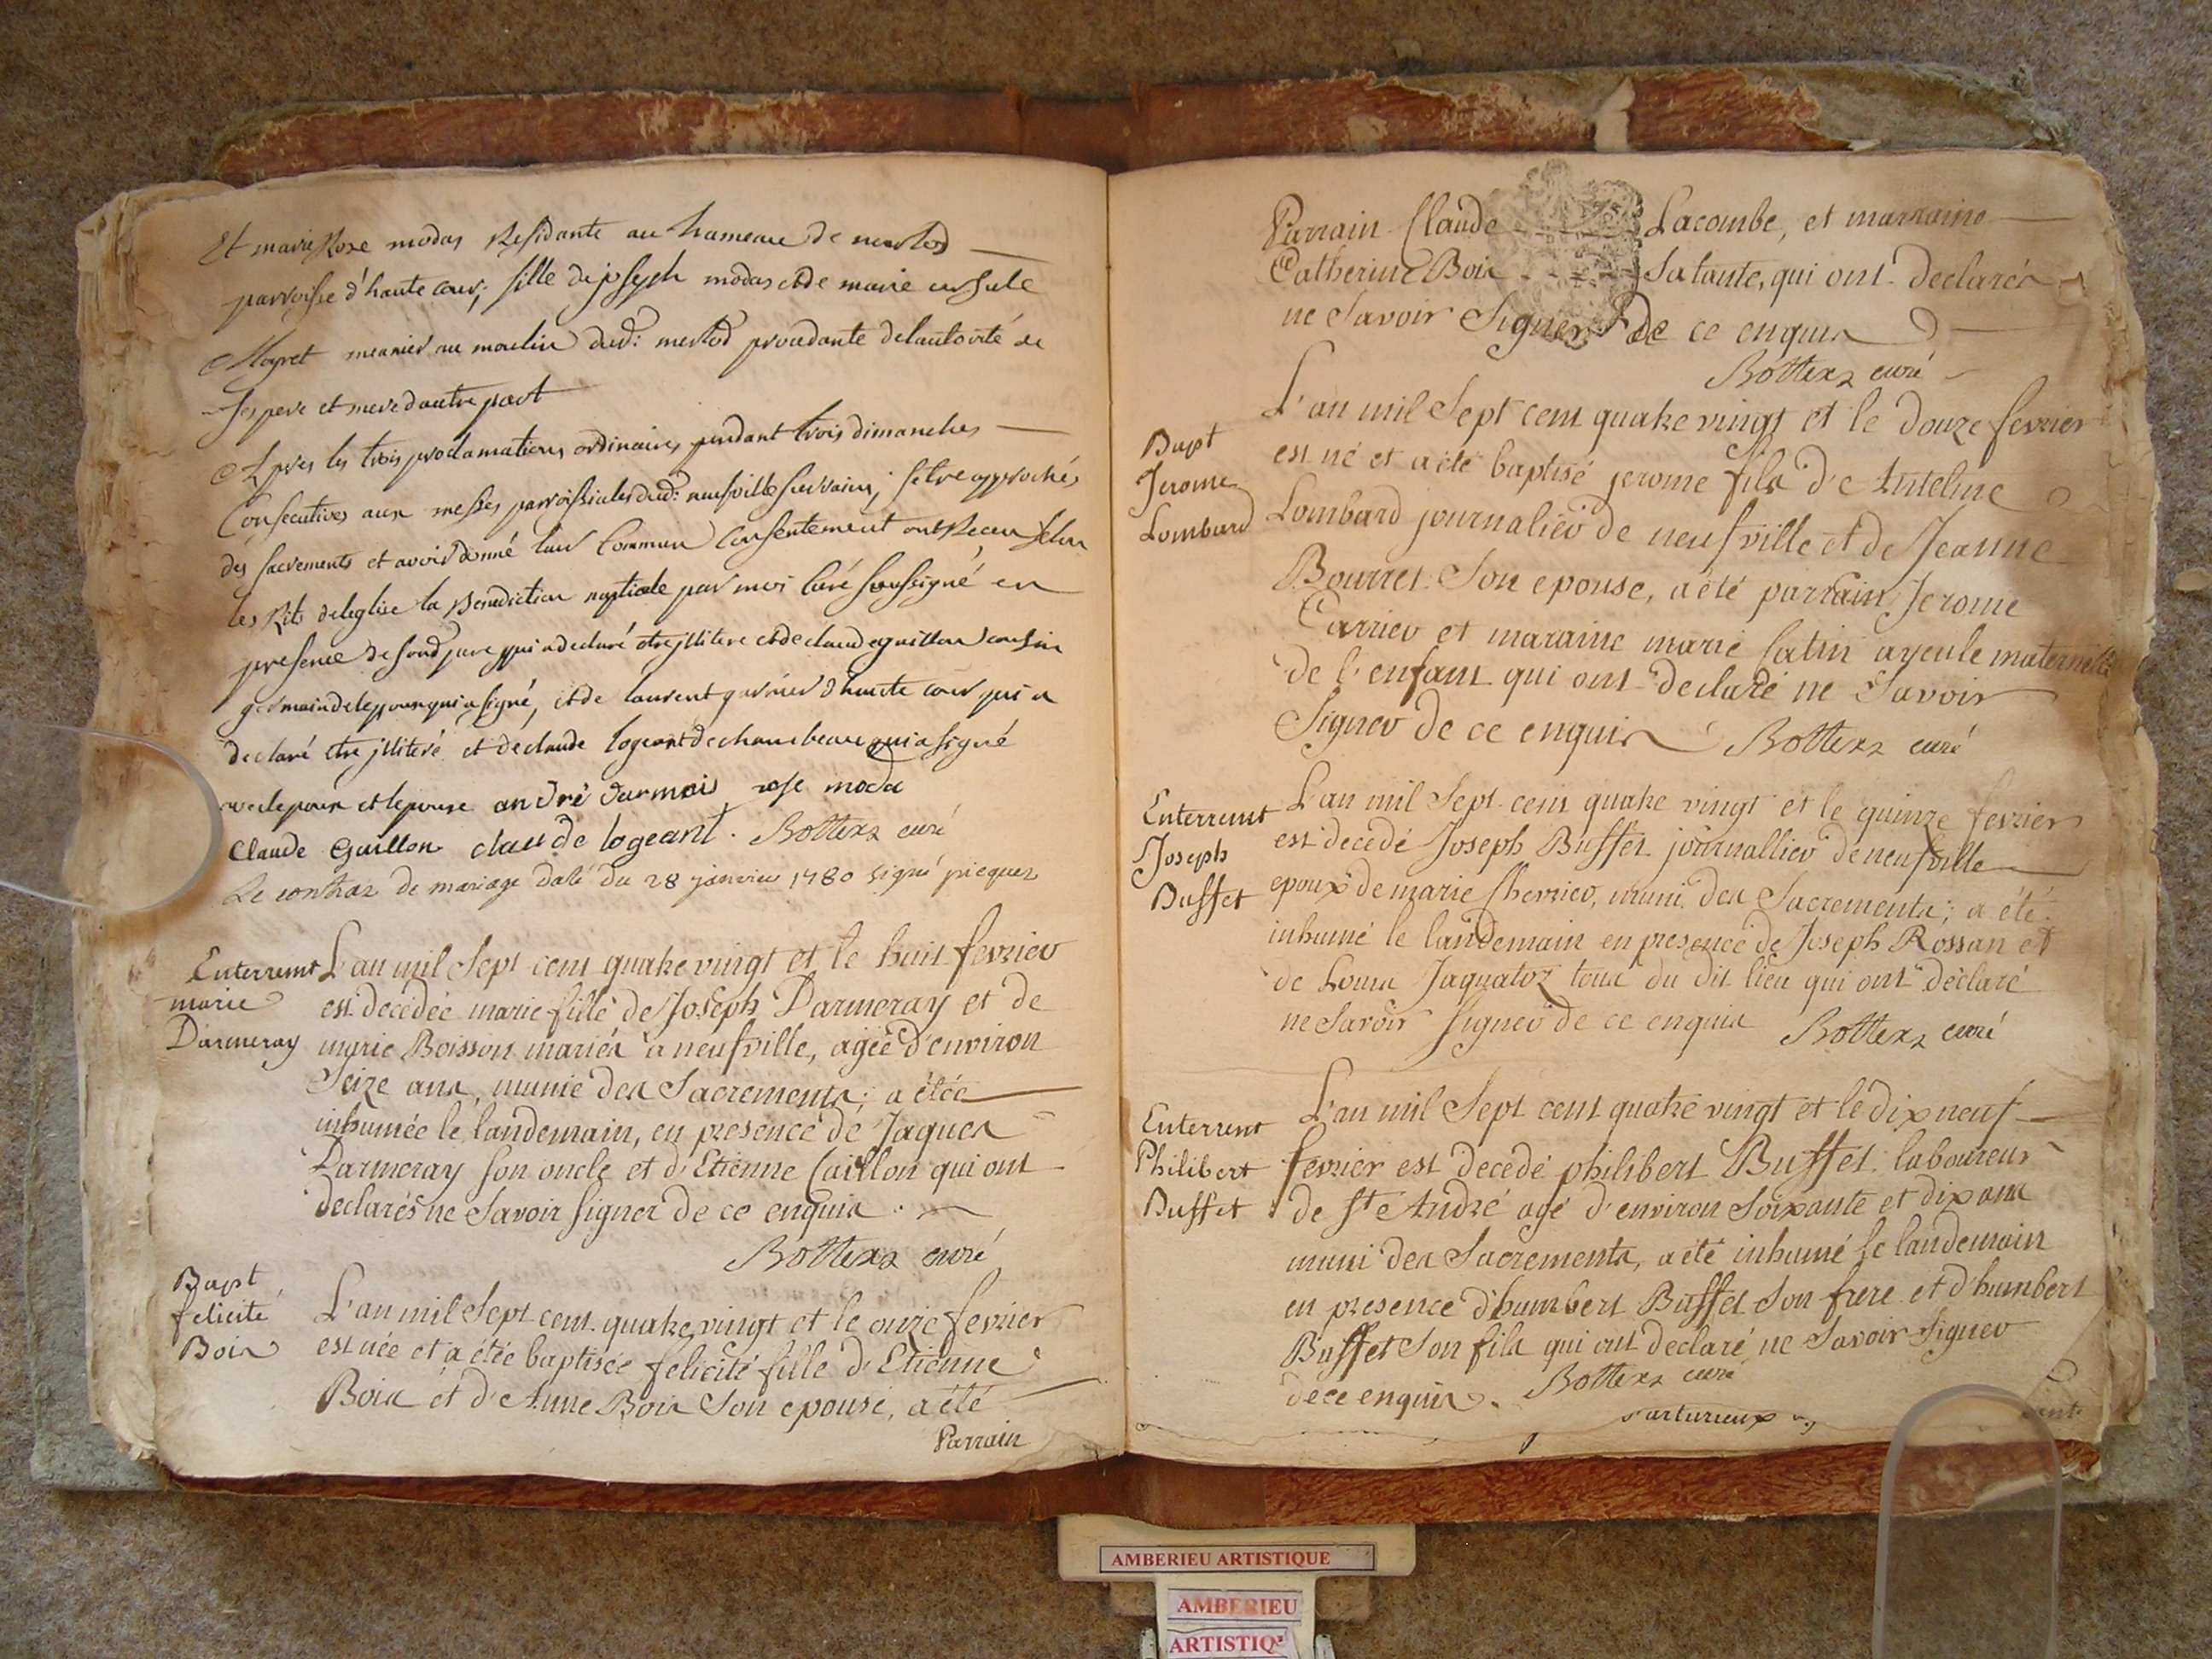 Et marie Rose modas Residante au hameau de
parroisse d'haute cour; fille de joseph modas et de marie ursule
meunier au moulin dud: de lautorité de
ses pere et mere dautre part
Apres les trois proclamations ordinaires pendant trois dimanches
Consecutives aux messes parroissiales dud: neufville setre approchés
des sacrements et avoir donné leur Commun Consentement ont Receu selon
les Rits de leglise la Benediction nuptiale par moi curé soussigné en
presence de qui a declaré etre jllitere et de claude guillon cousin
germain de lepoux qui a signé, et de laurent garnier d'haute cour qui a
declaré etre jlliteré et de claude logeant de chambeau qui a signé
avec lepoux et lepouse andré darmais rose moda
Claude Guillon claude logeant. Bottex curé
Le contrat de mariage daté du 28 janvier 1780 signé jicquet
Enterremt
marie
Darmeray
L'an mil Sept cent quatre vingt et le huit fevrier
est decedée marie fille de Joseph Darmeray et de
marie Boisson mariés a neufville, agée d'environ
Seize ans, munie des Sacrements; a étée
inhumée le landemain, en presence de Jaques
Darmeray son oncle et d'Etienne Caillon qui ont
declarés ne Savoir signer de ce enquis.
Bottex curé
Bapt
felicité
Bois
L'an mil Sept cent quatre vingt et le onze fevrier
est née et a étée baptisée felicité fille d'Etienne
Bois et d'Anne Bois Son epouse, a été
Parrain
Parrain Claude Lacombe, et marraine
Catherine Bois Sa tante, qui ont declarés
ne Savoir Signer de ce enquis
Bottex curé
Bapt
Jerome
Lombard
L'an mil Sept cent quatre vingt et le douze fevrier
est né et a été baptisé jerome fils d'Antelme
Lombard journalier de neufville et de Jeanne
Bourret Son epouse, a été parrain Jerome
Carrier et maraine marie Catin ayeule maternelle
de l'enfant qui ont declaré ne Savoir
Signer de ce enquis Bottex curé
Enterremt
Joseph
Buffet
L'an mil Sept cent quatre vingt et le quinze fevrier
est decedé Joseph Buffet journallier de neufville
epoux de marie Cherrier, muni des Sacrements; a été
inhumé le landemain en presence de Joseph Rossan et
de Louis Jaquatoz tous du dit lieu qui ont declaré
ne Savoir Signer de ce enquis Bottex curé
Enterremt
Philibert
Buffet
L'an mil Sept cent quatre vingt et le dix neuf
fevrier est decedé philibert Buffet laboureur
de St André agé d'environ Soixante et dix ans
muni des Sacrements, a été inhumé le landemain
en presence d'humbert Buffet Son frere et d'humbert
Buffet Son fils qui ont declaré ne Savoir Signer
de ce enquis. Bottex curé
AMBERIEU ARTISTIQUE
AMBERIEU
ARTISTIQ